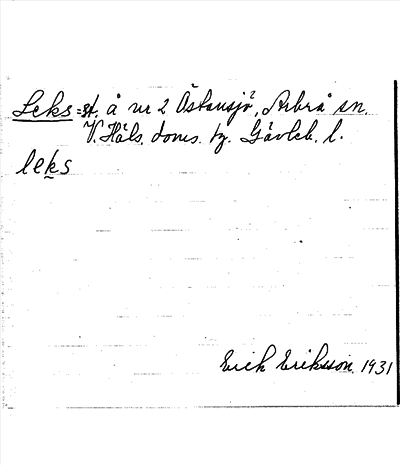 Leks =st. å nr 2 Östansjö, Arbrå sn.
V. Häls. doms. tg. Gävleb. l.
leks
Erik Eriksson 1931